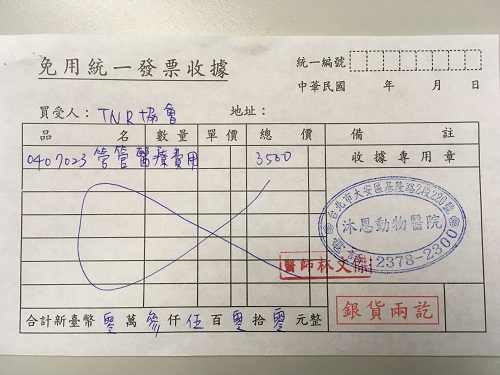 免用統一發票收據
統一編號
中華民國 年 月 日
買受人: TNR協會 地址:
品名 數量 單價 總價 備註
0407023 管管醫療費用 3500 收據專用章
台北市大安區基隆路2段220號
沐恩動物醫院
電話:2378-2300
醫師林文
銀貨兩訖
合計新臺幣 零 萬 參 仟 伍 百 零 拾 零 元整